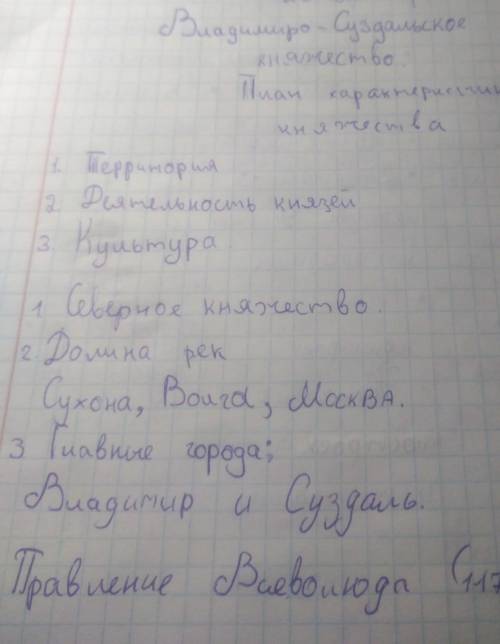 Владимиро-Суздальское
княжество.
План характеристики
княжества
1. Территория
2. Деятельность князей
3. Культура
1 Северное княжество.
2. Долина рек
Сухона, Волга, Москва.
3 Главные города:
Владимир и Суздаль.
Правление Всеволюда (117